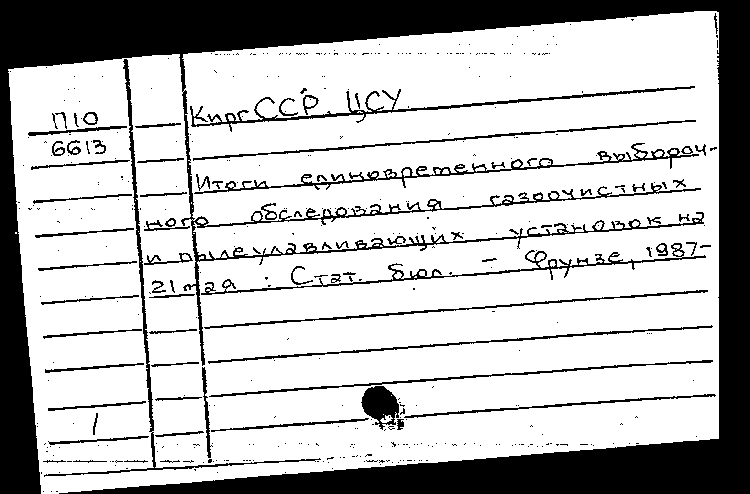 П10
6613
КиргССР. ЦСУ
Итоги единовременного выбороч-
ного обследования газоочистных
и пылеулавливающих установок на
21 мая : Стат. бюл. - Фрунзе, 1987-
1